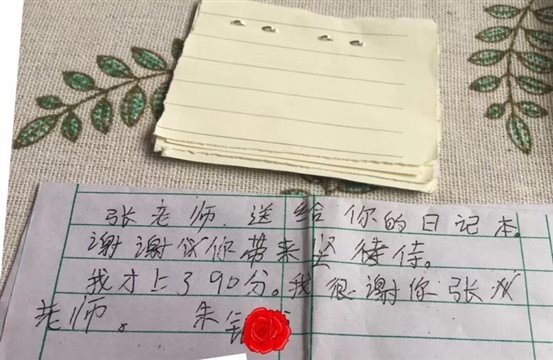 张老师,送给你的日记本。
谢谢你带来坚待
我才上了90分。我很谢你张
老师。 朱